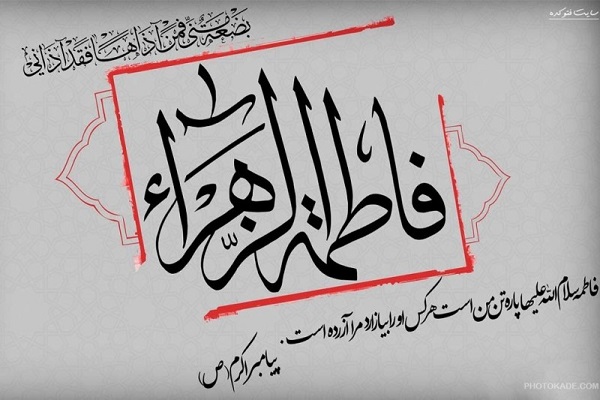 سایت فتوکده
بضعة منّي فمن آذاها فقد آذاني
فاطمة الزّهراء
فاطمه سلام الله علیها پاره تن من است هر کس او را بیازارد مرا آزرده است.
پیامبر اکرم (ص)
PHOTOKADE.COM